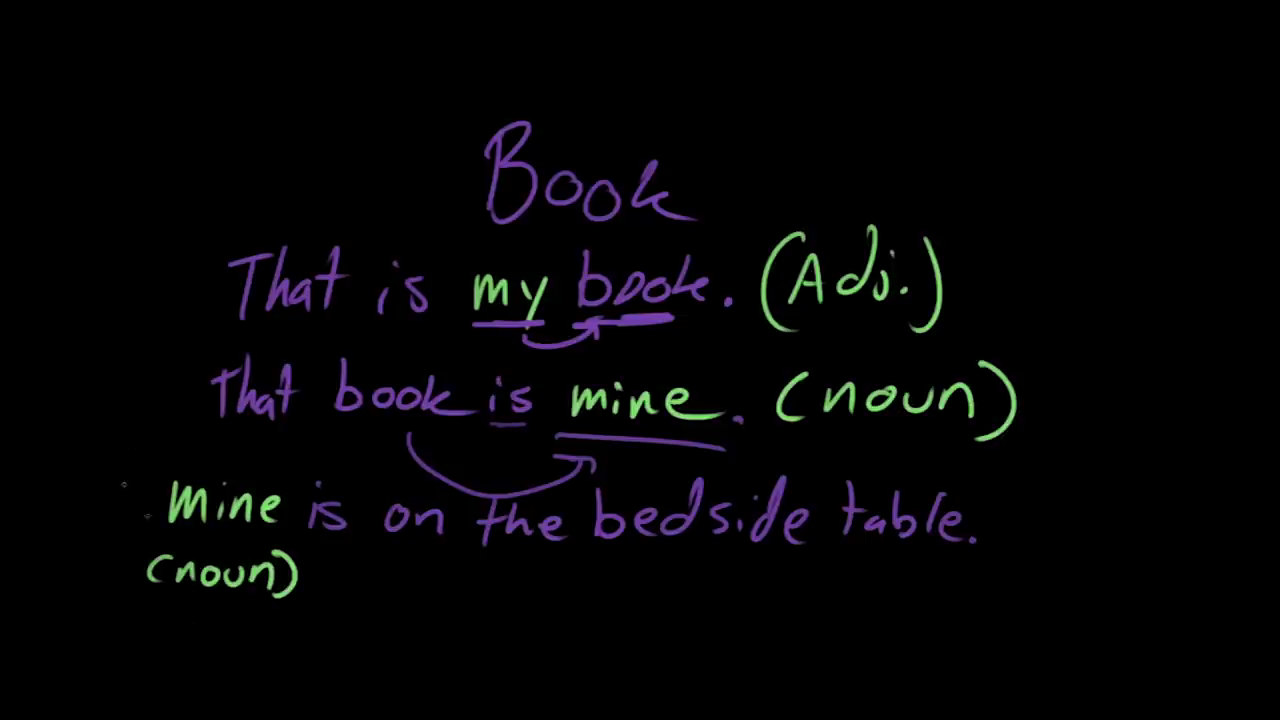 Book
That is my book. (Adj.)
That book is mine. (noun)
Mine is on the bedside table.
(noun)